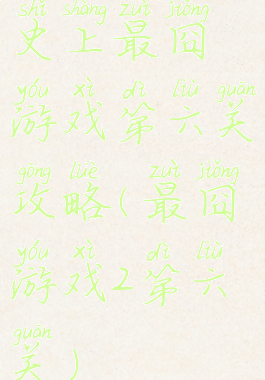 shǐ shàng zuì jiǒng
史上最囧
yóu xì dì liù guān
游戏第六关
gōng lüè zuì jiǒng
攻略(最囧
yóu xì dì liù
游戏2第六
guān
关)